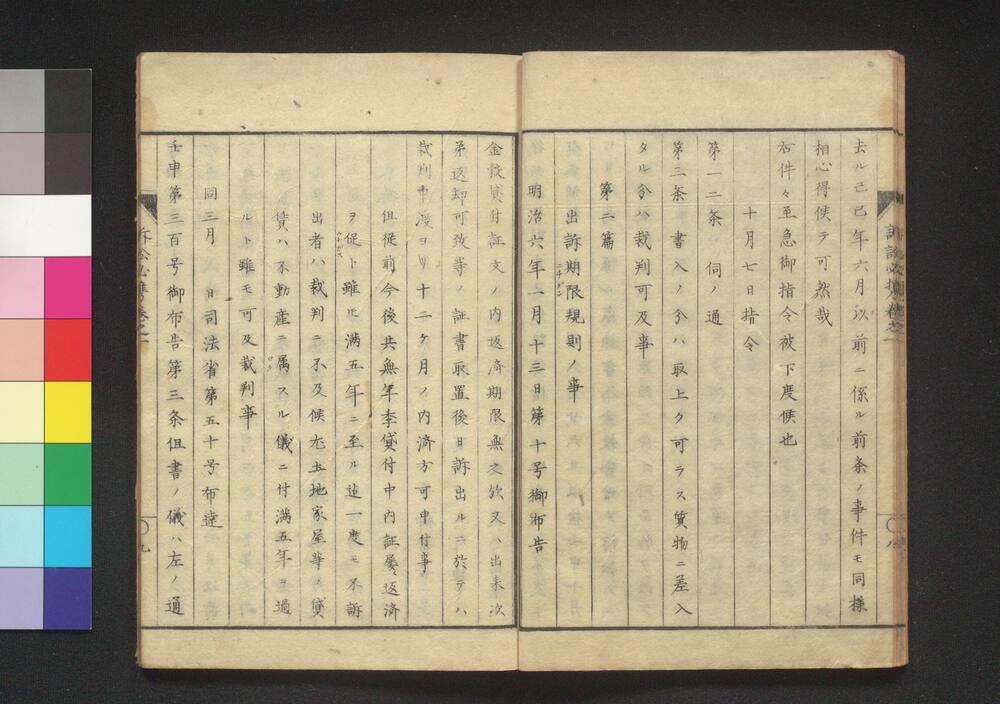 去ル己巳年六月以前ニ係ル前条ノ事件モ同様
相心得候テ可然哉
右件々至急御指令被下度候也
十月七日指令
第一二条 伺ノ通
第三条 書入ノ分ハ取上ク可ラス質物ニ差入
タル分ハ裁判可及事
第二篇
出訴期限規則ノ事
明治六年一月十三日第十号御布告
金穀貸付証文ノ内返済期限無之欤又ハ出来次
第返却可致等ノ証書取置後日訴出ルニ於テハ
裁判申渡ヨリ十二ケ月ノ内済方可申付事
但従前今後共無年季貸付中内証屡々返済
ヲ促ト雖𪜈満五年ニ至ル迄一度モ不訴
出者ハ裁判ニ不及候尤土地家屋等ノ貸
賃ハ不動産ニ属スル儀ニ付満五年ヲ過
ルト雖モ可及裁判事
同三月 日司法省第五十号布達
壬申第三百号御布告第三条但書ノ儀ハ左ノ通
訴訟必携巻之一
〇九